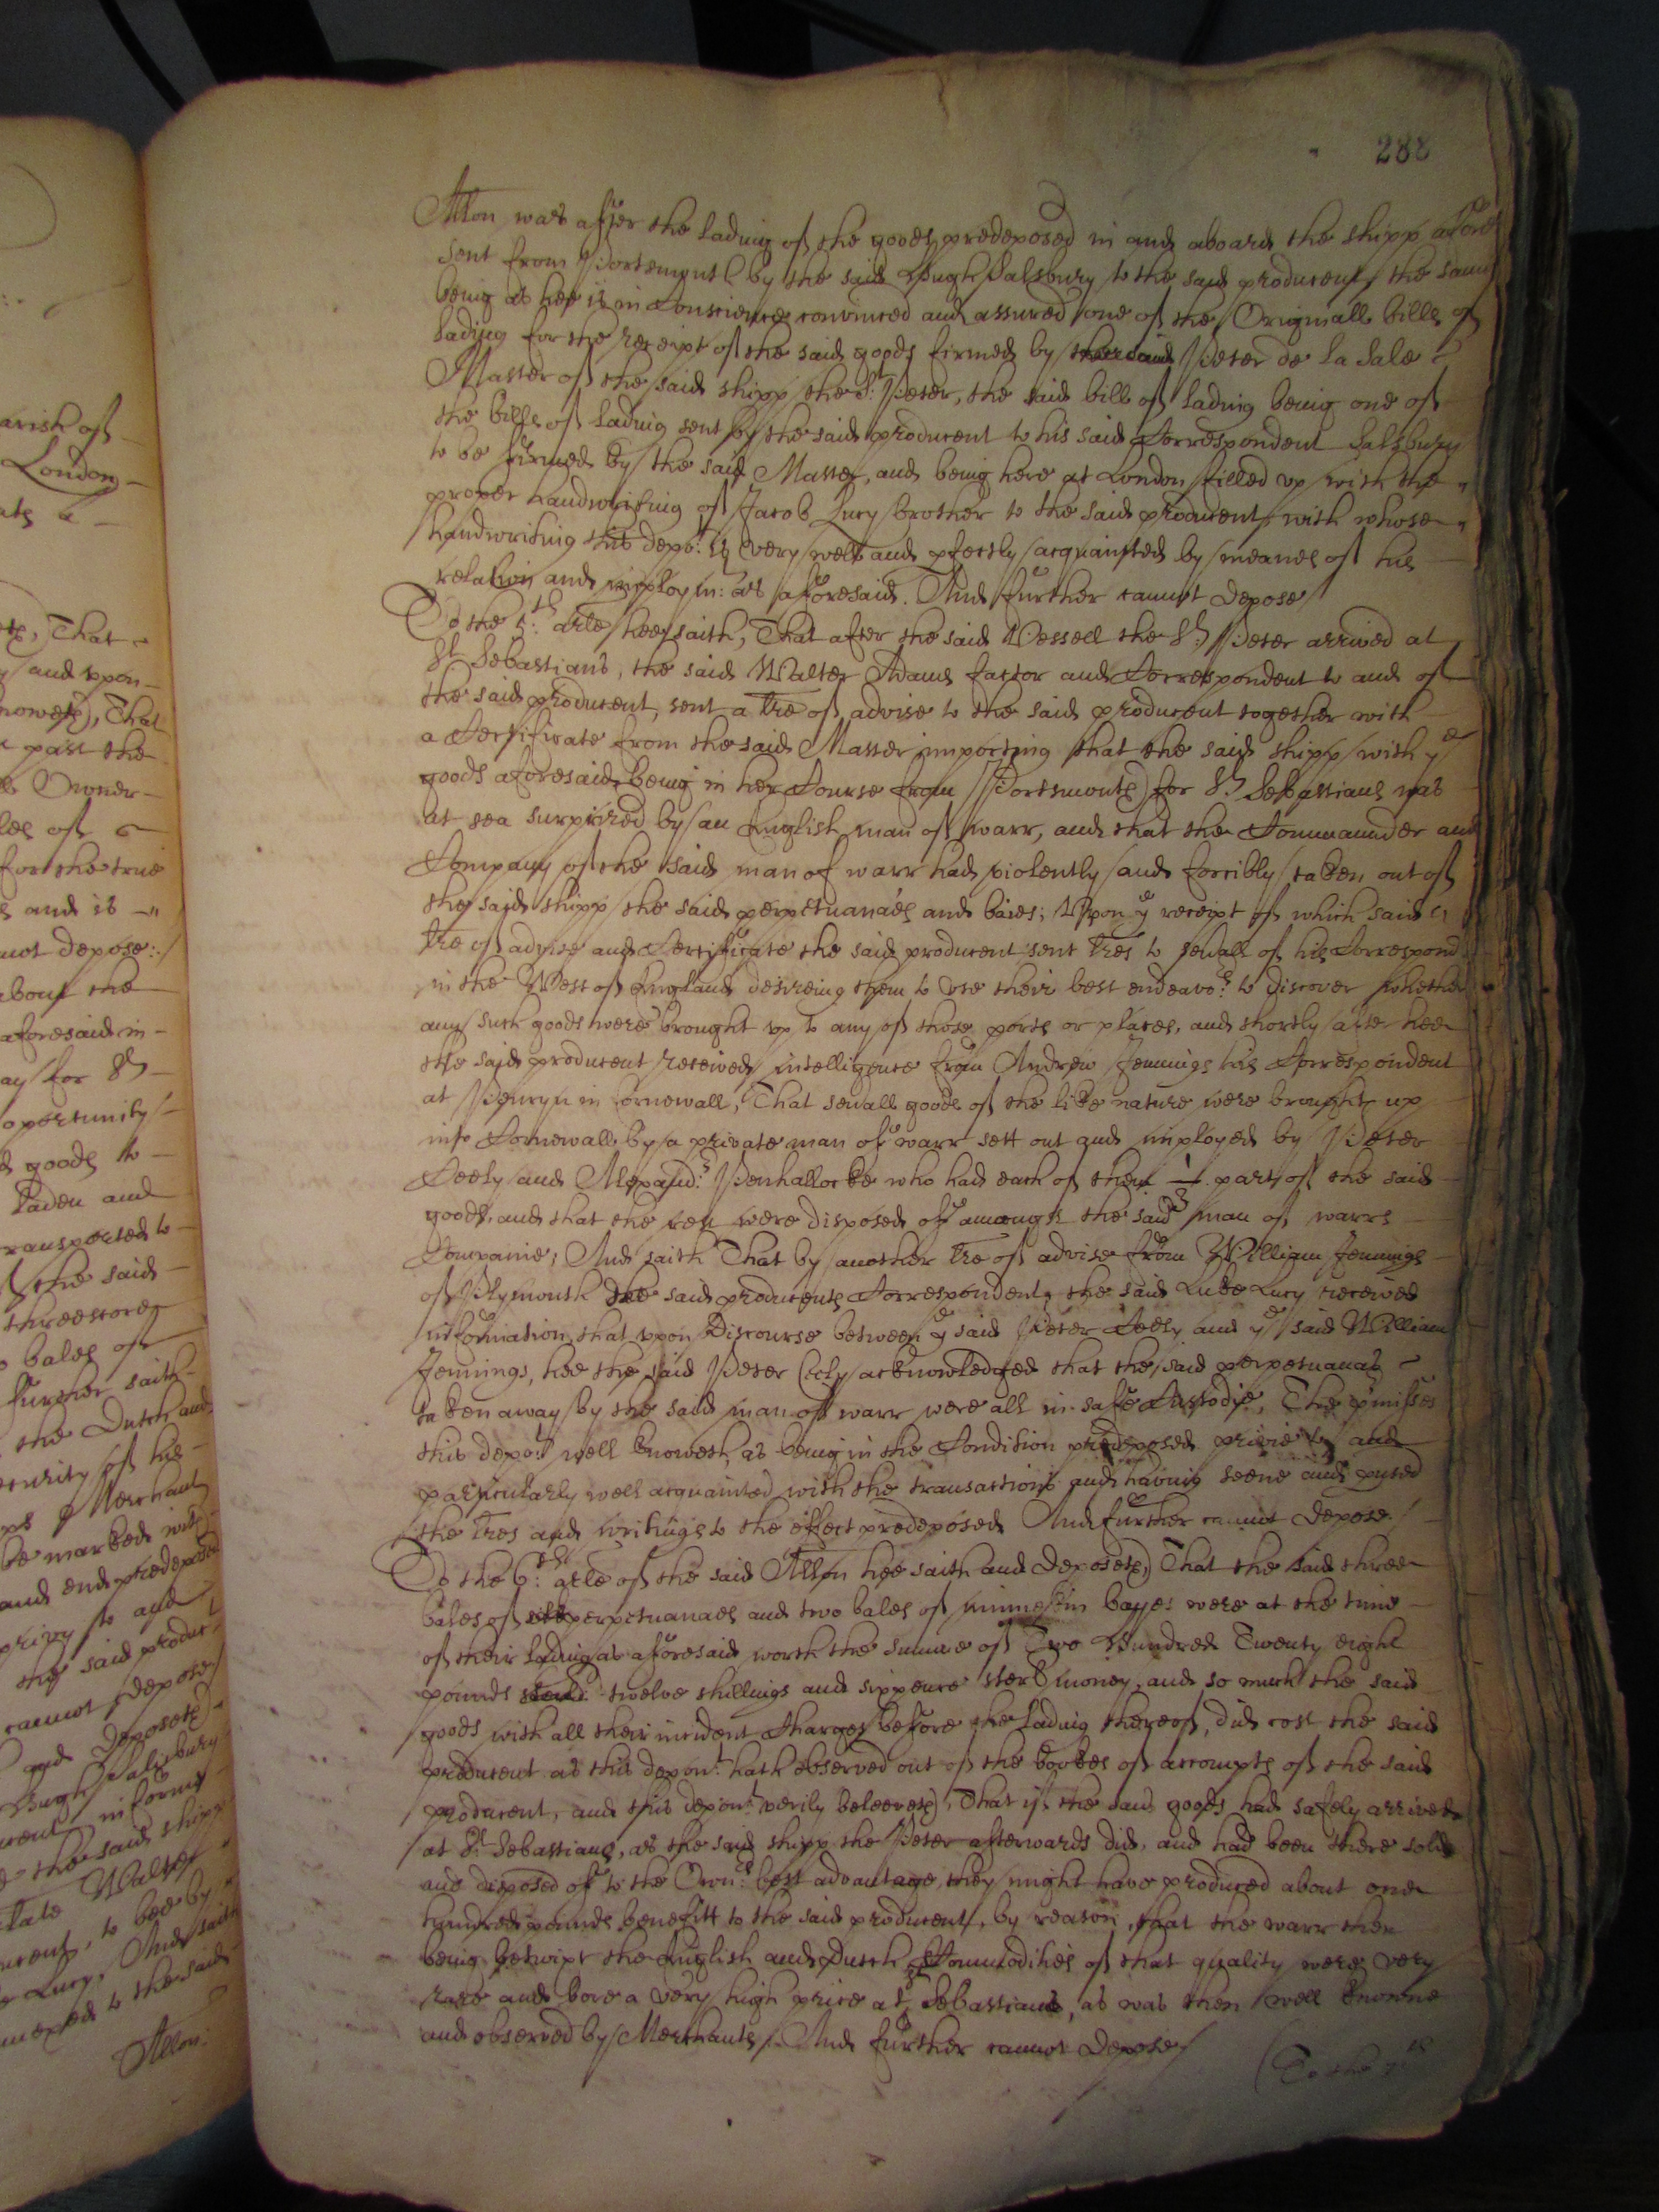 288
Allon was after the lading of the goods predeposed in and aboard the shipp afores
sent from Portsmouth by the said Hugh Salsbury to the said producent, the same
being as hee is in Conscience convinced and assured one of the Originall bills of
lading for the receipt of the said goods firmed by Peter de la Sale
Master of the said shipp the St Peter, the said bill of lading being one of
the bills of lading sent by the said producent to his said Correspondent Salsbury
to be firmed by the said Master, and being here at London filled up with the
proper handwriting of Jacob Lucy brother to the said producent, with whose
handwriting this depot is very well and pfectly acquainted by meanes of his
relation and imploym: as aforesaid. And further cannot depose
To the 5th arle hee saith, That after the said Vessell the St Peter arrived at
St Sebastians, the said Walter Adams factor and Correspondent to and of
the said producent, sent a tre of advise to the said producent together with
a Certificate from the said Master importing that the said shipp with ye
goods aforesaid being in her Course from Portsmouth for St Sebastians was
at sea surprized by an English man of warr, and that the Commander and
Company of the said man of warr had violently and forcibly taken out of
the said shipp the said perpetuanaes and baies; Upon ye receipt of which said
tre of advise and Certificate the said producent sent tres to sevall of his Correspond
in the West of England desireing them to use their best endeavors to discover whether
any such goods were brought up to any of those ports or places, and shortly after hee
the said producent received intelligence from Andrew Jennings his Correspondent
at Penryn in Cornewall, That sevall goods of the like nature were brought up
into Cornewall by a private man of warr sett out and imployed by Peter
Ceely and Alexandr Penhallocke who had each of them 1/3 part of the said
goods, and that the rest were disposed of amongst the said man of warrs
Companie; And saith That by another tre of advise from William Jennings
of Plymouth the said producents Correspondent, the said Luke Lucy received
information, that upon Discourse between ye said Peter Ceely and ye said William
Jennings, hee the said Peter Ceely acknowledged that the said perpetuanaes
taken away by the said man of warr were all in safe Custodie, The pmisses
this depot well knoweth, as being in the Condition predeposed privie to and
particularly well acquainted with the transactions and having seene and pused
the tres and writings to the effect predeposed. And further cannot depose
To the 6th arle of the said Allon hee saith and deposeth, That the said three
bales of perpetuanaes and two bales of minnekin bayes were at the time
of their lading as aforesaid worth the summe of Two Hundred Twenty eight
pounds twelve shillings and sixpence sterl money, and so much the said
goods with all their incident Charges before the lading thereof, did cost the said
producent as this depont hath observed out of the bookes of accompts of the said
producent, and this depont verily beleeveth, That if the said goods had safely arrived
at St Sebastians, as the said shipp the Peter afterwards did, and had been there sold
and disposed of to the Ownrs best advantage, they might have produced about one
hundred pounds benefitt to the said producent, by reason, that the warr then
being betwixt the English and Dutch Commodities of that quality were very
rare and bore a very high price at Sebastians, as was then well knowne
and observed by Merchants. And further cannot depose
To the 7th